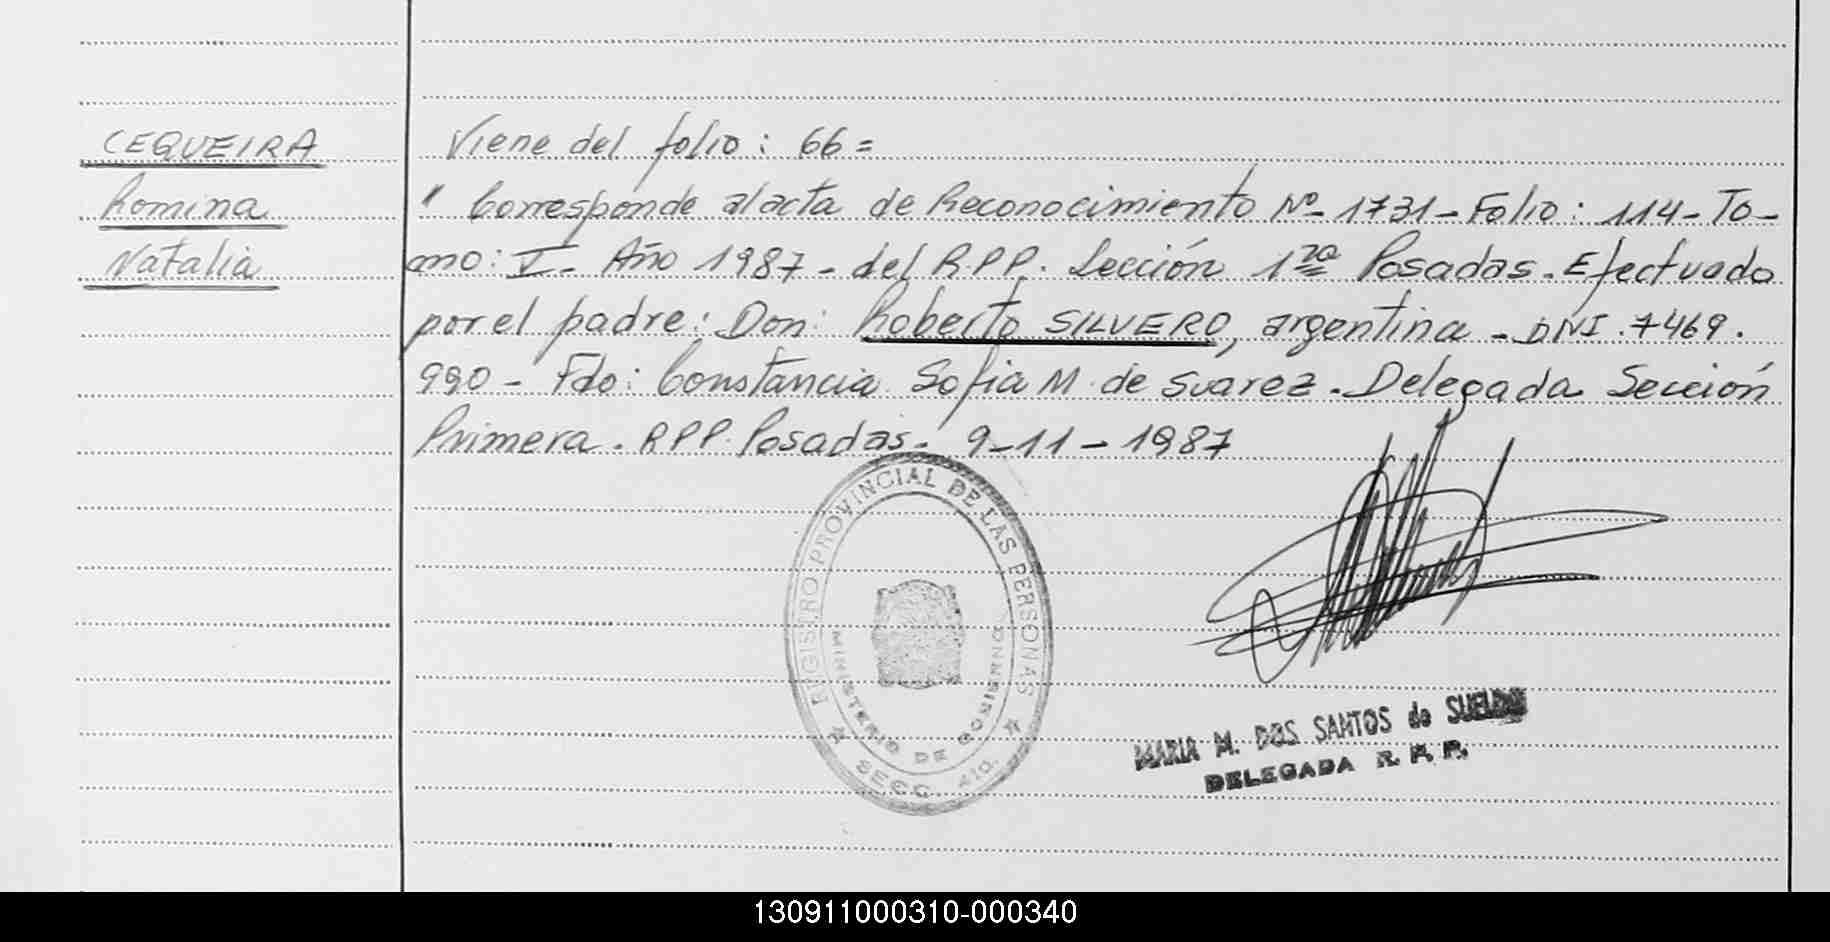 CEQUEIRA
Romina
Natalia
Viene del folio: 66=
" Corresponde al acta de Reconocimiento Nº 1731 - Folio: 114 - To-
mo: V - Año 1987 - del R.P.P. Sección 1ra Posadas. Efectuado
por el padre: Don: Roberto SILVERO, argentina - DNI. 7469.
990 - Fdo: Constancia Sofia M. de Suarez. Delegada Sección
Primera. RPP. Posadas. 9-11-1987
REGISTRO PROVINCIAL DE LAS PERSONAS
MINISTERIO DE GOBIERNO
SECC. 4ta.
MARIA M. DOS SANTOS de
DELEGADA R. P. P.
130911000310-000340